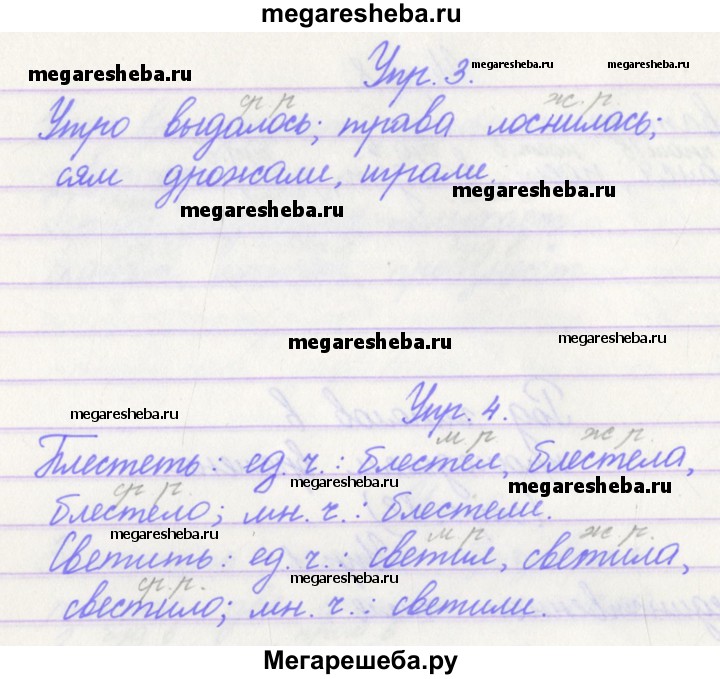 megaresheba.ru
Упр. 3.
megaresheba.ru megaresheba.ru megaresheba.ru
ср. р. ж. р.
Утро выдалось; трава лоснилась;
сям дрожали, играли.
megaresheba.ru
megaresheba.ru
megaresheba.ru
megaresheba.ru
Упр. 4.
megaresheba.ru
м. р. ж. р.
Блестеть: ед. ч.: блестел, блестела,
megaresheba.ru
megaresheba.ru
ср. р.
блестело; мн. ч.: блестели.
megaresheba.ru
м. р. ж. р.
Светить: ед. ч.: светил, светила,
megaresheba.ru
ср. р.
свестило; мн. ч.: светили.
Мегарешеба.ру